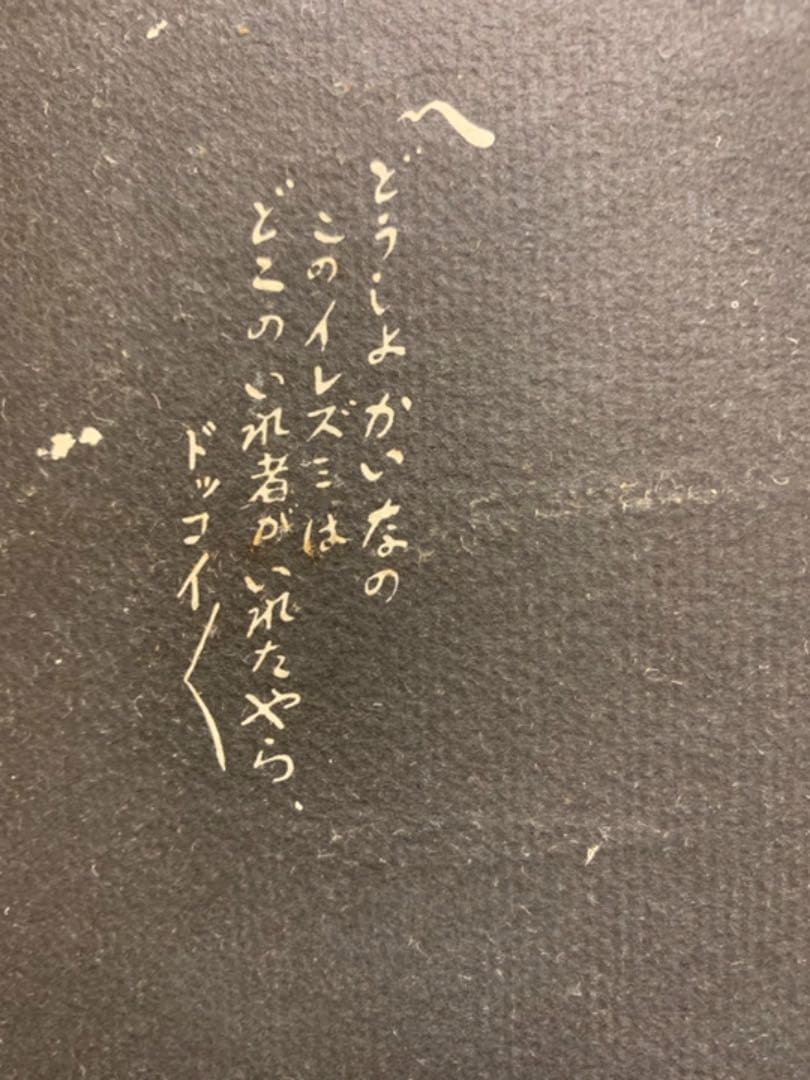 〽どうしよかいなの
このイレズミは
どこのいれ者がいれたやら、
ドッコイ〱